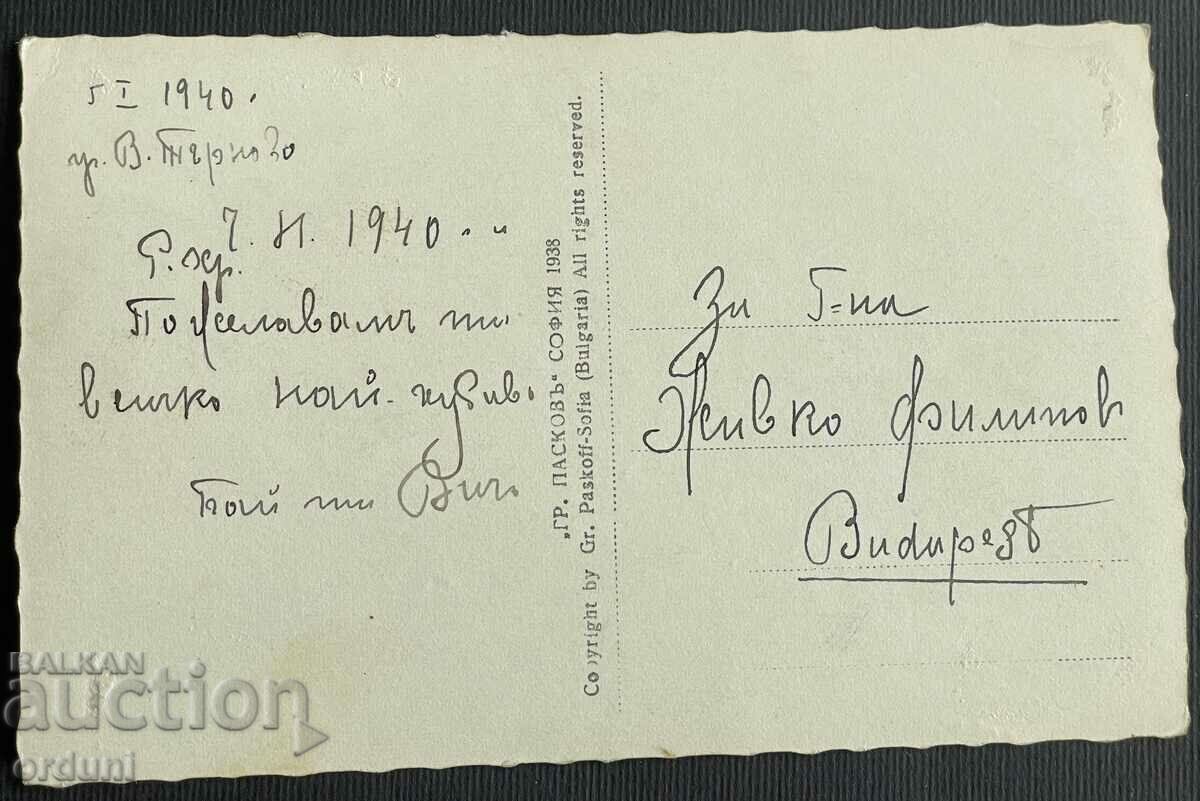 5 I 1940.
гр. В. Търново
1940
Пожелавамъ ти
всичко най-хубаво
Твой ти
„ГР. ПАСКОВЪ" СОФИЯ 1938
Copyright by Gr. Paskoff-Sofia (Bulgaria) All rights reserved.
За Г-на
Живко Филипов
BALKAN
auction
orduni